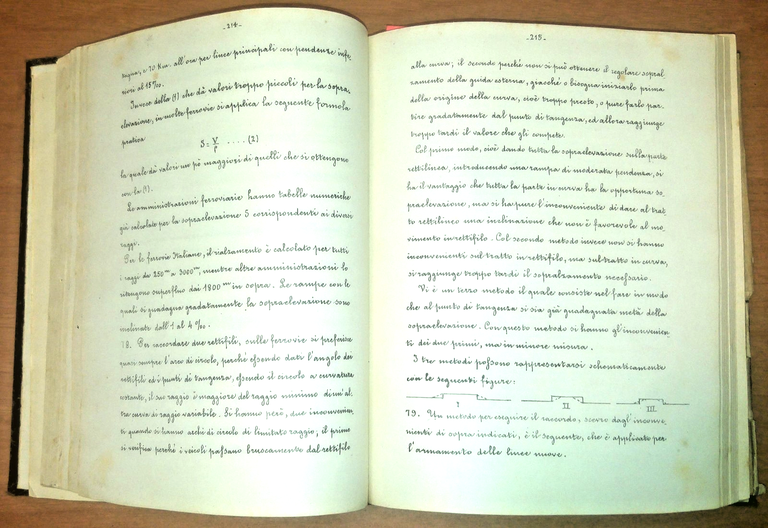 - 214 -
tagna, e 70 Km. all'ora per linee principali con pendenze infe
riori al 15‰.
Invece della (1) che dà valori troppo piccoli per la sopra
elevazione, in molte ferrovie si applica la seguente formola
pratica
S = V/r . . . . (2)
la quale dà valori un pò maggiori di quelli che si ottengono
con la (1).
Le amministrazioni ferroviarie hanno tabelle numeriche
già calcolate per la sopraelevazione S corrispondenti ai diversi
raggi.
Per le ferrovie Italiane, il rialzamento è calcolato per tutti
i raggi da 250m a 3000m, mentre altre amministrazioni lo
ritengono superfluo dai 1800m in sopra. Le rampe con le
quali si guadagna gradatamente la sopraelevazione sono
inclinate dall'1 al 4‰.
78. Per raccordare due rettifili, sulle ferrovie si preferisce
quasi sempre l'arco di circolo, perché essendo dati l'angolo dei
rettifili ed i punti di tangenza, essendo il circolo a curvatura
costante, il suo raggio è maggiore del raggio minimo di un'al
tra curva di raggio variabile. Si hanno però, due inconvenien
ti quando si hanno archi di circolo di limitato raggio, il primo
si verifica perché i veicoli passano bruscamente dal rettifilo
- 215 -
alla curva; il secondo perché non si può ottenere il regolare sopral
zamento della guida esterna, giacché o bisogna iniziarlo prima
della origine della curva, cioè troppo presto, o pure farlo par
tire gradatamente dal punto di tangenza, ed allora raggiunge
troppo tardi il valore che gli compete.
Col primo modo, cioè dando tutta la sopraelevazione sulla parte
rettilinea, introducendo una rampa di moderata pendenza, si
ha il vantaggio che tutta la parte in curva ha la opportuna so
praelevazione, ma si ha pure l'inconveniente di dare al trat
to rettilineo una inclinazione che non è favorevole al mo
vimento in rettifilo. Col secondo metodo invece non si hanno
inconvenienti sul tratto in rettifilo, ma sul tratto in curva,
si raggiunge troppo tardi il sopralzamento necessario.
Vi è un terzo metodo il quale consiste nel fare in modo
che al punto di tangenza si sia già guadagnata metà della
sopraelevazione. Con questo metodo si hanno gl'inconvenien
ti dei due primi, ma in minore misura.
I tre metodi possono rappresentarsi schematicamente
con le seguenti figure:
I II III
79. Un metodo per eseguire il raccordo, scevro dagl'inconve
nienti di sopra indicati, è il seguente, che è applicato per
l'armamento delle linee nuove.